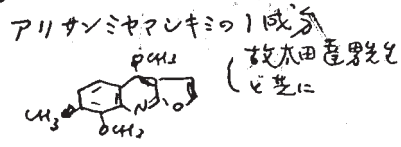 アリサンミヤマシキミの1成分
(故太田達男先生
と共に
OCH3
N
O
CH3
OCH3